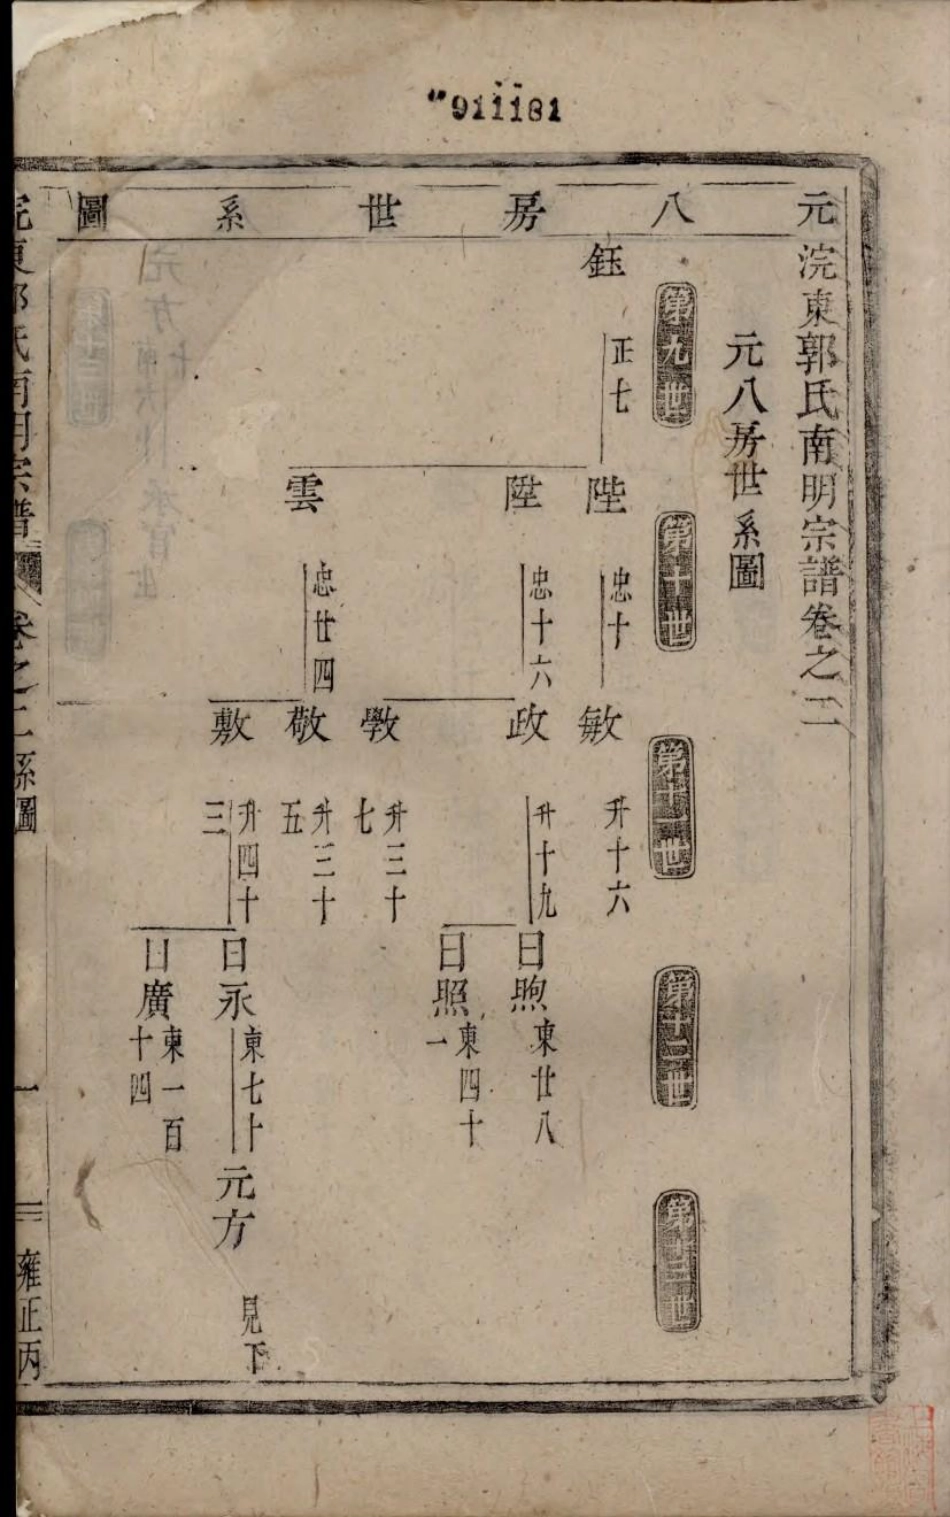 911181
元八房世系圖
浣東郭氏南明宗譜卷之二
元八房世系圖
第九世
第十世
第十一世
第十二世
第十三世
鈺
正七
陛
忠十
敏
升十六
陞
忠十六
政
升十九
日煦
東廿八
日照
東四十
一
斆
升三十
七
雲
忠廿四
敬
升三十
五
敷
升四十
三
日永
東七十
元方
見下
日廣
東一百
十四
浣東郭氏南明宗譜
卷之二
系圖
一
雍正丙